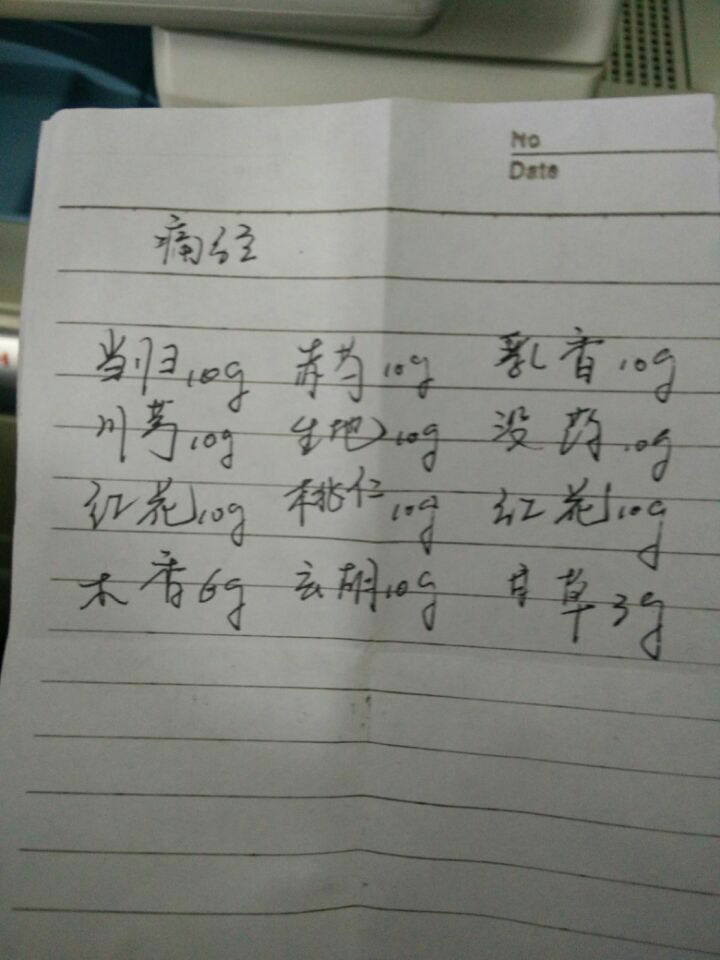 No
Date
痛经
当归10g 赤芍10g 乳香10g
川芎10g 生地10g 没药10g
红花10g 桃仁10g 红花10g
木香6g 玄胡10g 甘草3g